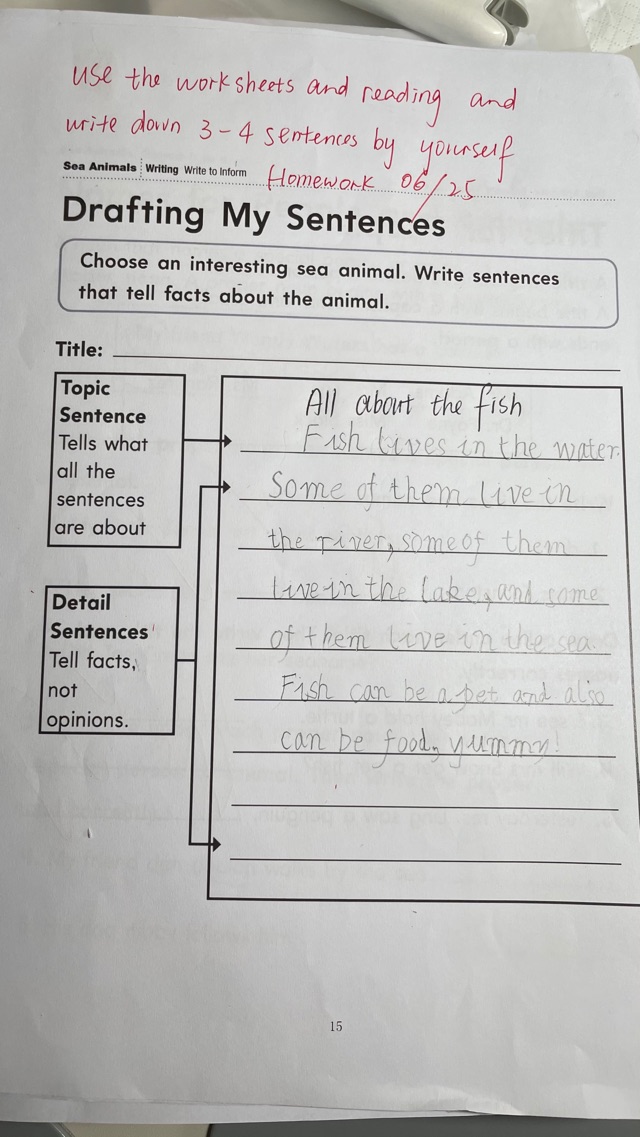 use the worksheets and reading and
write down 3-4 sentences by yourself
Sea Animals Writing Write to Inform Homework 06/25
Drafting My Sentences
Choose an interesting sea animal. Write sentences
that tell facts about the animal.
Title:
Topic
Sentence
Tells what
all the
sentences
are about
Detail
Sentences
Tell facts,
not
opinions.
All about the fish
Fish lives in the water.
Some of them live in
the river, some of them
live in the lake, and some
of them live in the sea.
Fish can be a pet and also
can be food, yummy!
15